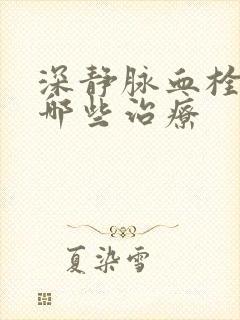 深静脉血栓
哪些治疗
夏染雪